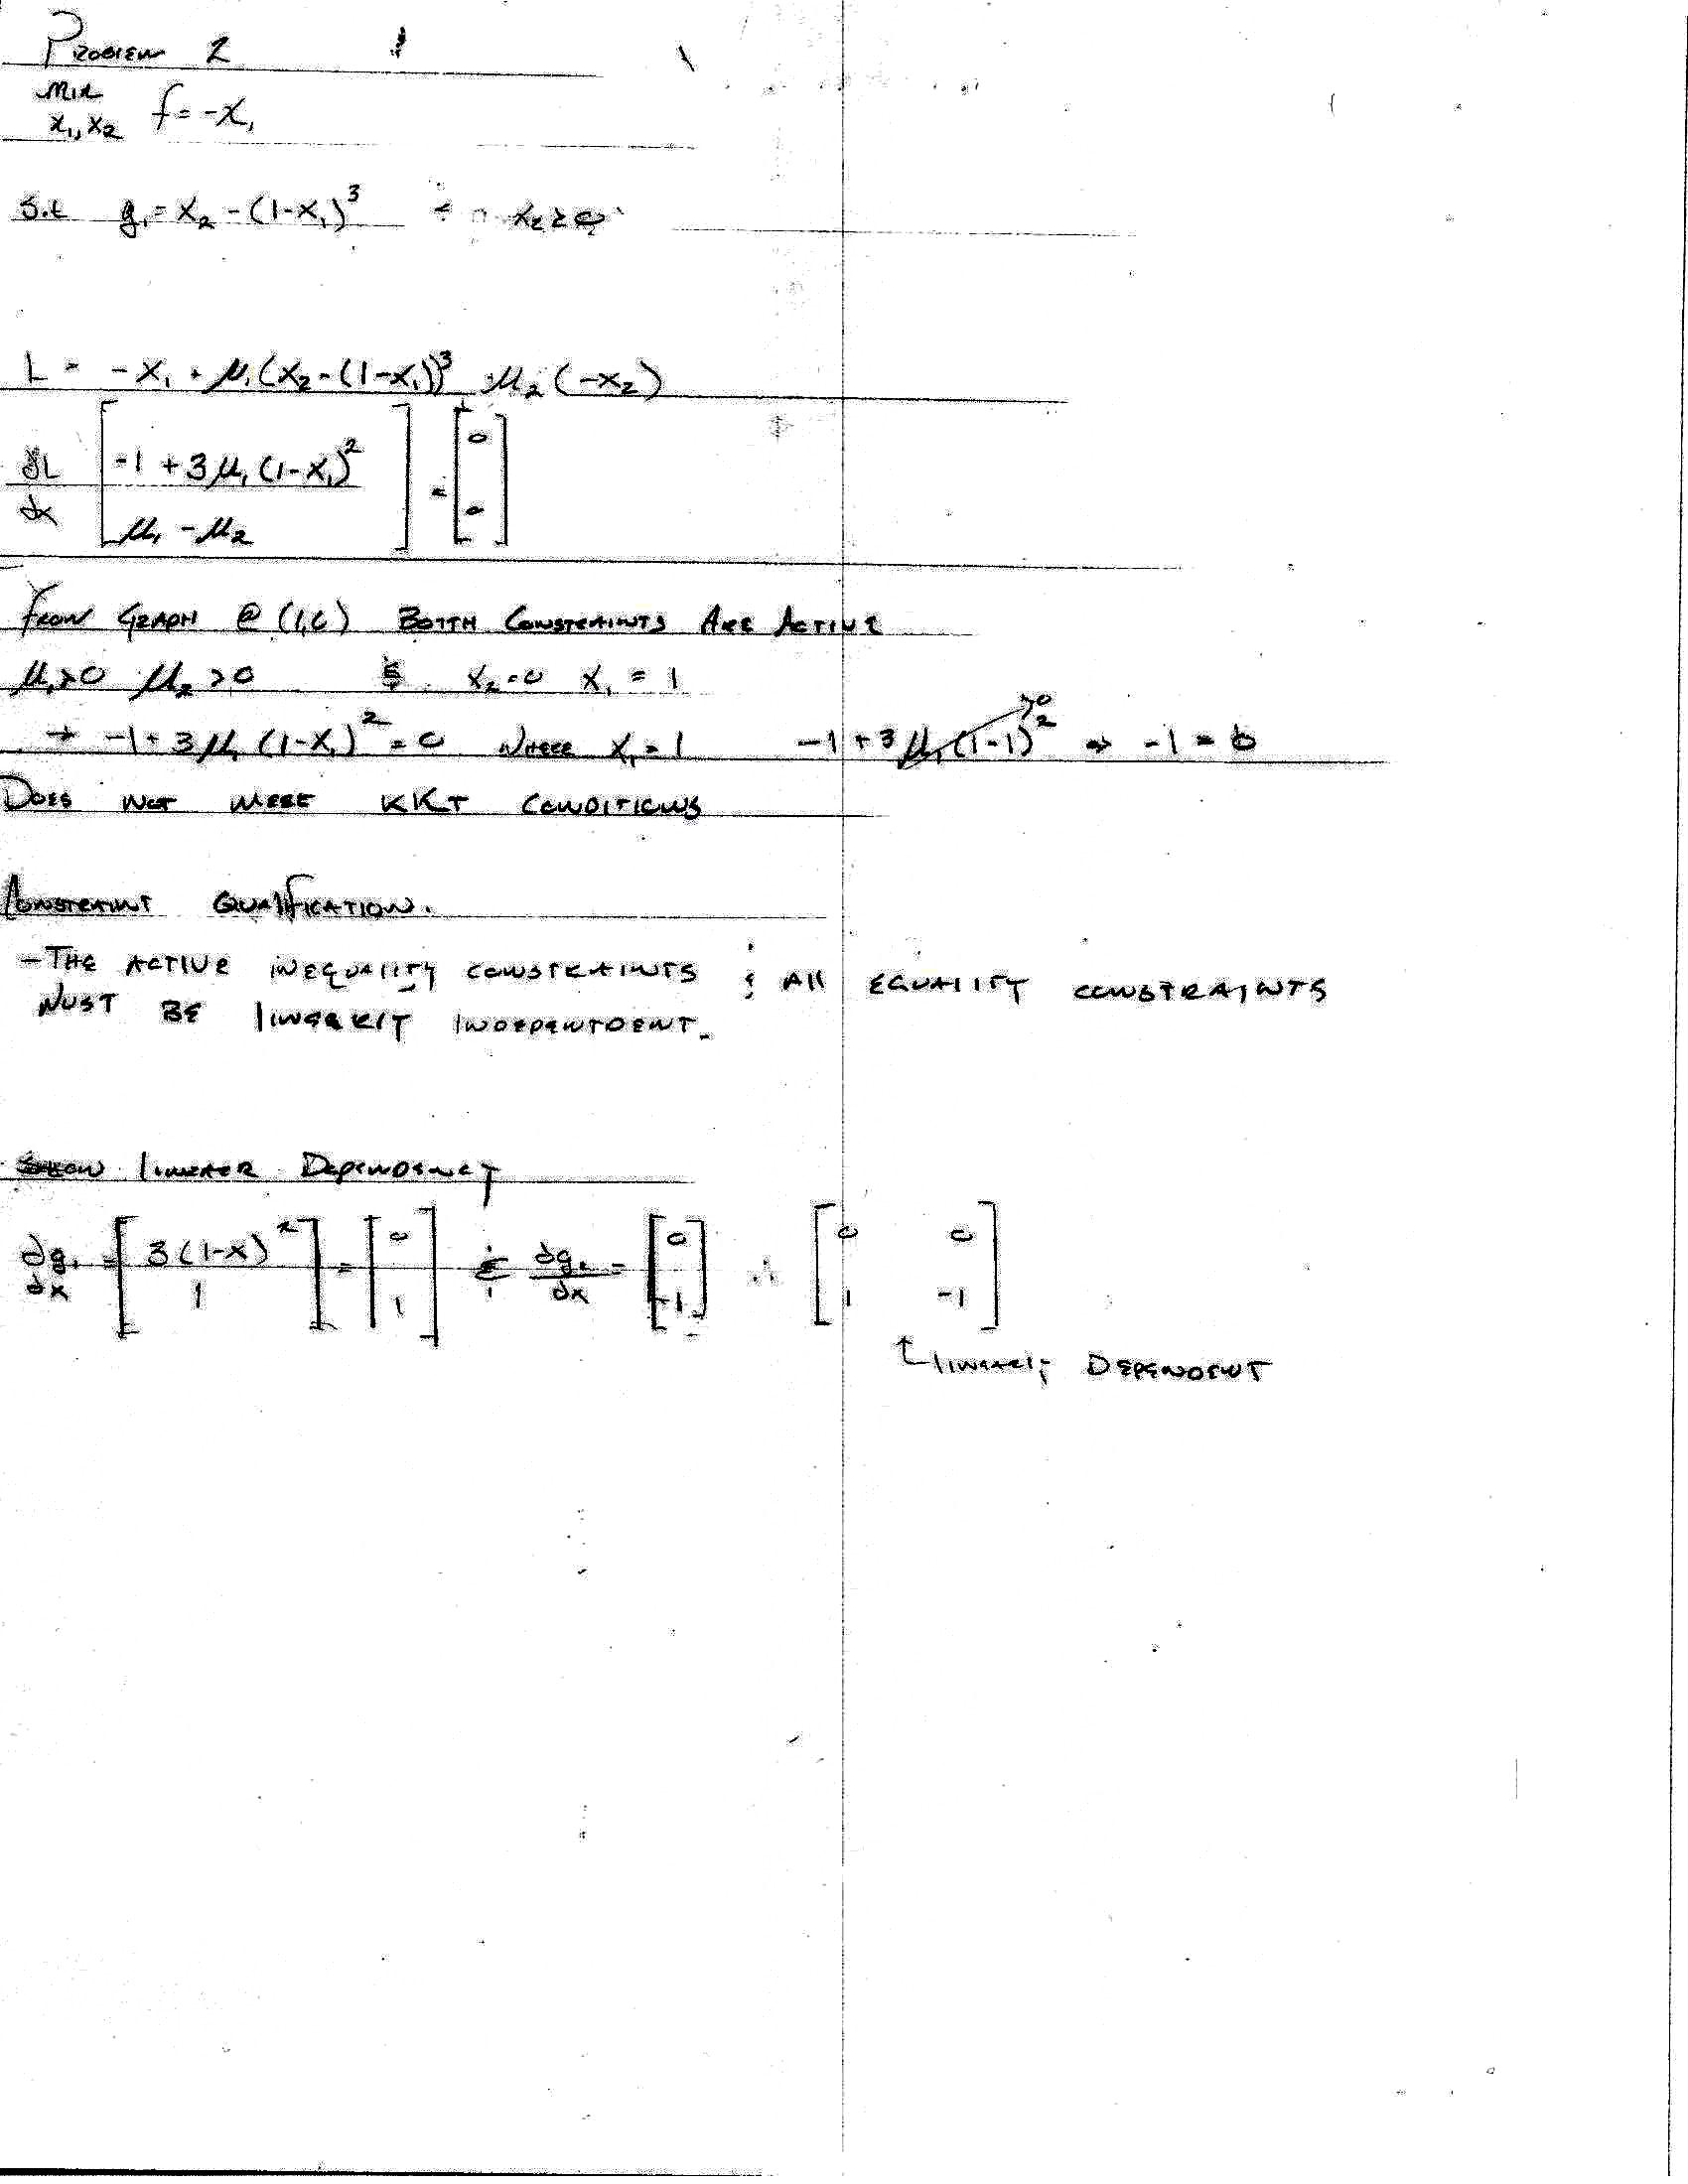 Problem 2
min
x₁,x₂ f=-x₁
s.t g₁=x₂-(1-x₁)³ x₂≥0
L = -x₁ + μ₁(x₂-(1-x₁))³ + μ₂(-x₂)
∂L/∂x [-1+3μ₁(1-x₁)² ; μ₁-μ₂] = [0 ; 0]
From Graph @ (1,0) Both Constraints Are Active
μ₁>0 μ₂>0 & x₂=0 x₁=1
→ -1+3μ₁(1-x₁)²=0 where x₁=1 -1+3μ₁(1-1)²→0 ⇒ -1=0
Does not meet KKT Conditions
Constraint Qualification.
-The active inequality constraints & all equality constraints
must be linearly independent.
Show linear Dependency
∂g₁/∂x = [3(1-x)² ; 1] = [0 ; 1] & ∂g₂/∂x = [0 ; -1] ∴ [0 0 ; 1 -1]
↑linearly Dependent